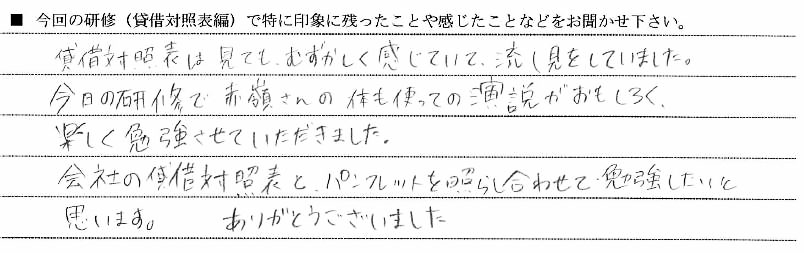 ■ 今回の研修（貸借対照表編）で特に印象に残ったことや感じたことなどをお聞かせ下さい。
貸借対照表は見ても、むずかしく感じていて、流し見をしていました。
今日の研修で赤嶺さんの体も使っての演説がおもしろく、
楽しく勉強させていただきました。
会社の貸借対照表と、パンフレットを照らし合わせて勉強したいと
思います。 ありがとうございました